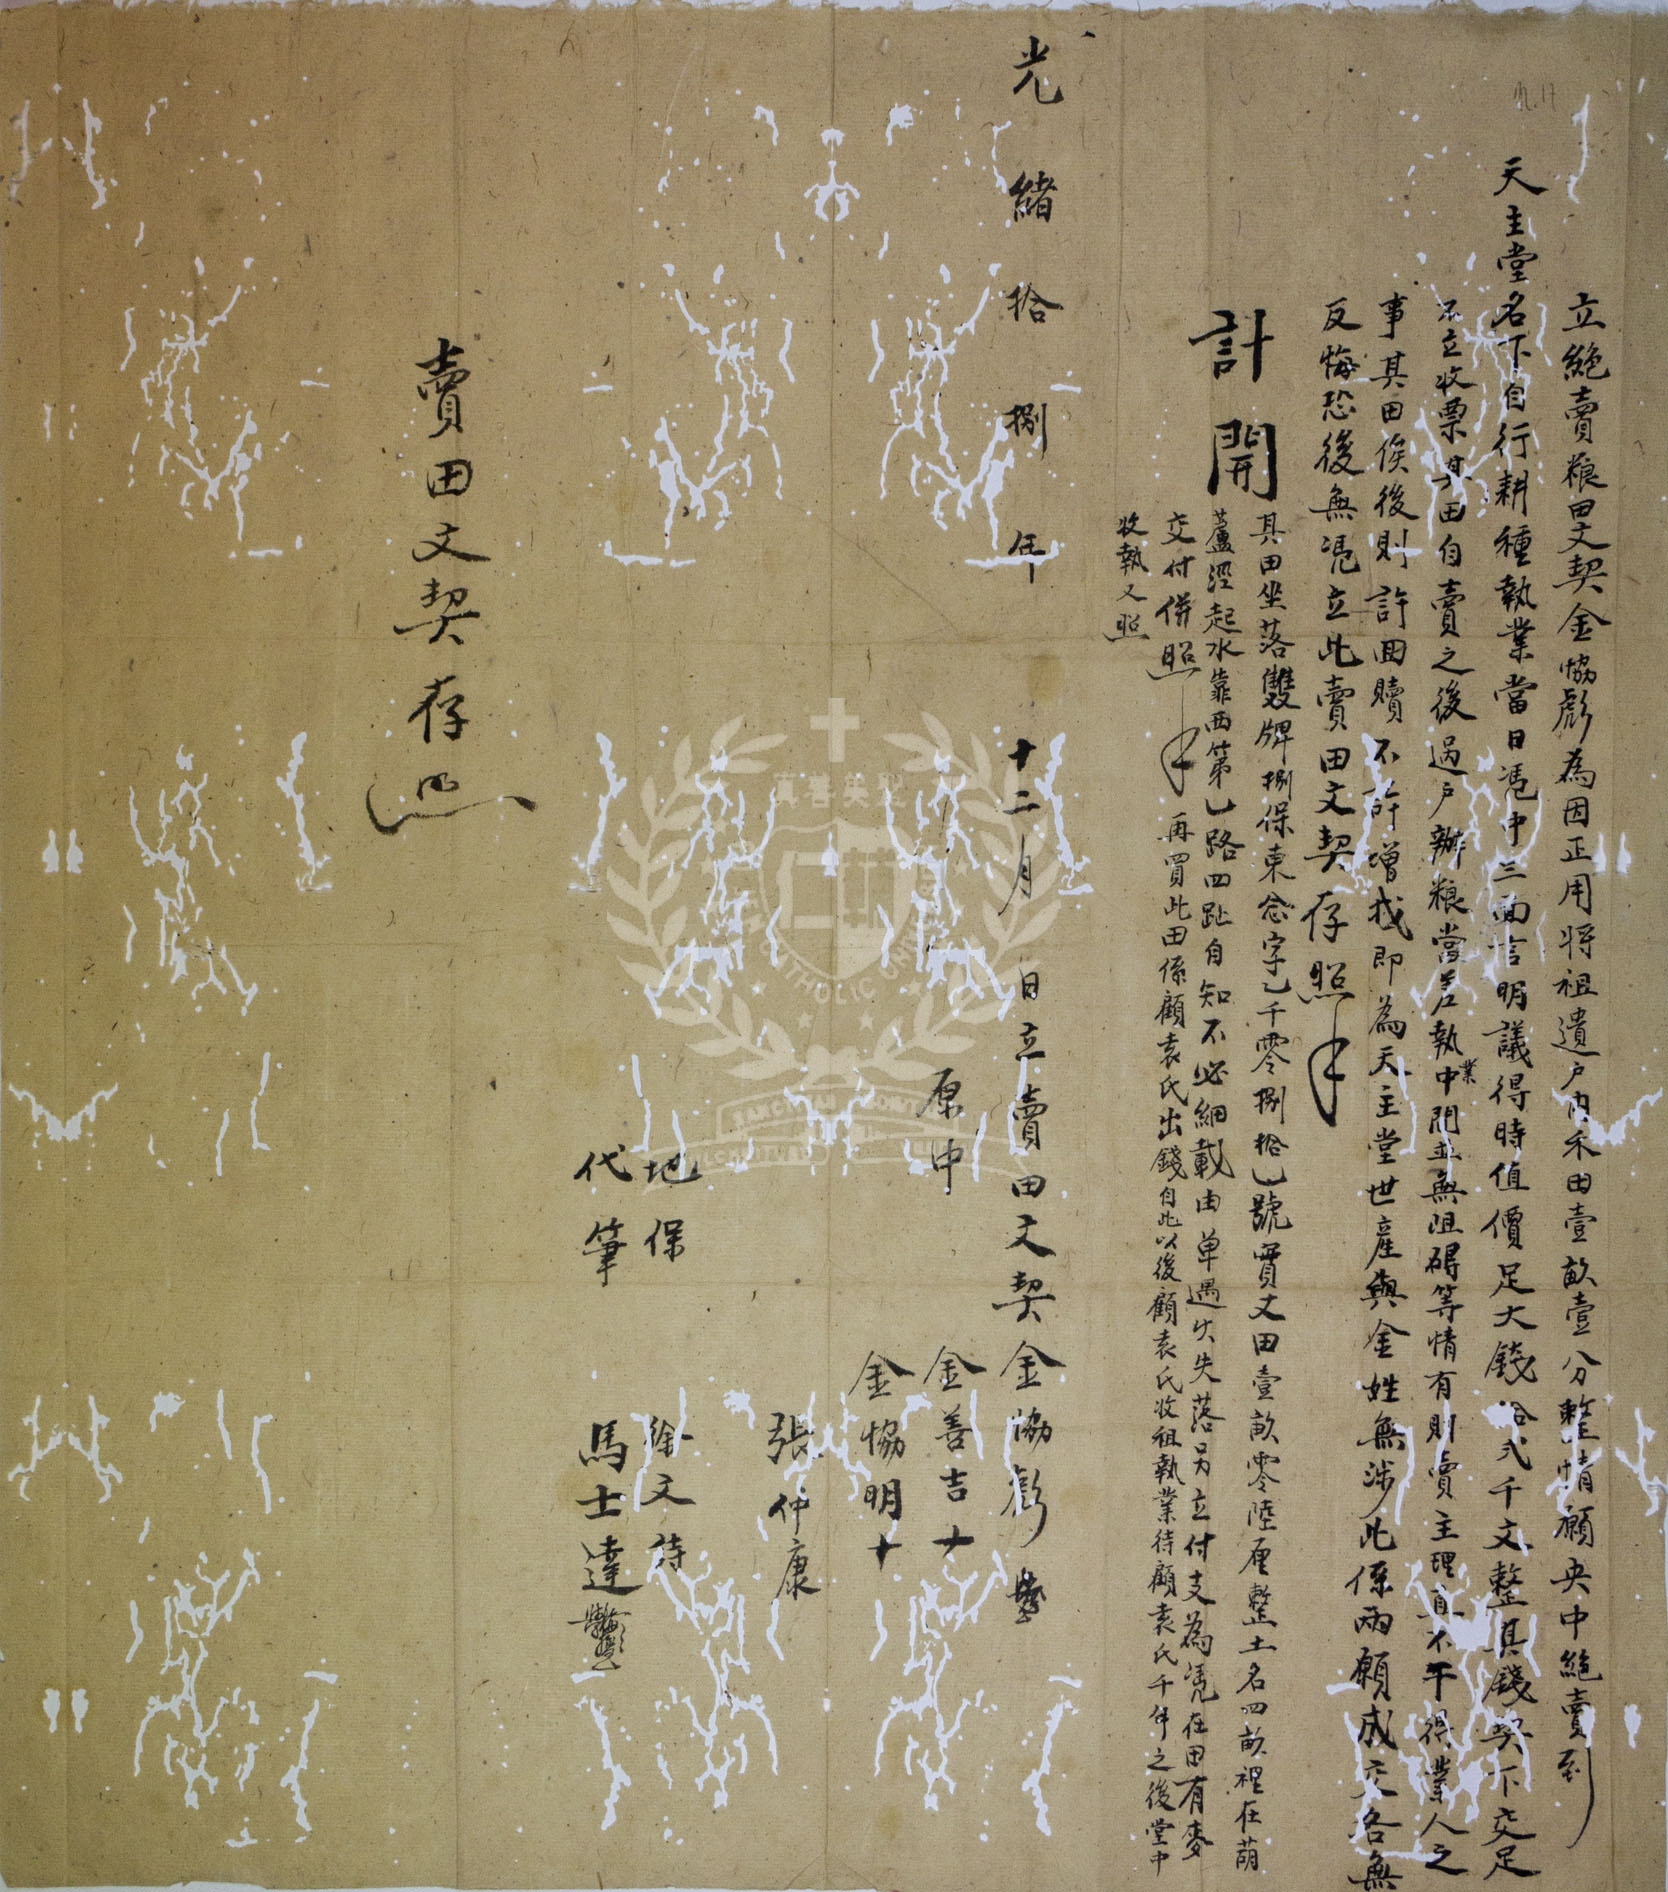 立絕賣粮田文契金協彪為因正用將祖遺戶內禾田壹畝壹分整情願央中絕賣到
天主堂名下自行耕種執業當日憑中三面言明議得時值價足大錢拾弍千文整其錢契下交足
不立收票其田自賣之後過戶辦粮當差執業中間並無阻碍等情有則賣主理直不干得業人之
事其田俟後則許回贖不許增找即為天主堂世產與金姓無涉此係兩願成交各無
反悔恐後無憑立此賣田文契存照
計開
其田坐落雙牌捌保東念字乙千零捌拾乙號實丈田壹畝零陸厘整土名四畝裡在葫
蘆涇起水靠西第乙路四趾自知不必細載由單遇失失落另立付支為憑在田有麥
交付併照 再買此田係顧袁氏出錢自此以後顧袁氏收祖執業待顧袁氏千年之後堂中
收執又照
光緒拾捌年十二月 日立賣田文契金協彪
原中 金善吉十
金協明十
張仲康
地保 徐文待
代筆 馬士達
賣田文契存照
真善美聖